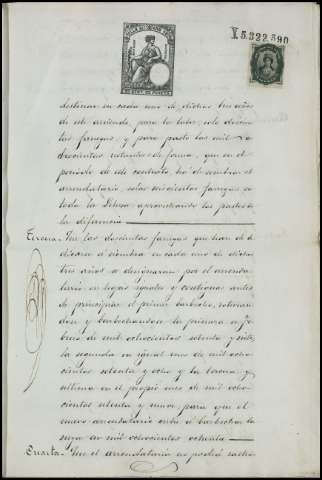 V5.322.590
destinar en cada uno de dichos tres años
de este arriendo, para la labor, solo doscien
tas fanegas, y para pasto las mil
doscientas restantes de forma, que en el
periodo de este contrato ha de sembrar el
arrendatario, solas seiscientas fanegas en
toda la Dehesa aprovechando los pastos de
la diferencia
Tercera. Que las doscientas fanegas que han de
dicarse á siembra en cada uno de dichos
tres años se designaran por el arrenda
tario en lugar iguales y contiguas antes
de principiar el primer barbecho,
dose y barbechandose la primera en Fe
brero de mil ochocientos setenta y siete
la segunda en igual mes de mil ocho
cientos setenta y ocho y la tercera y
ultima en el propio mes de mil ocho
cientos setenta y nueve para que el
nuevo arrendatario entre á barbechar la
suya en mil ochocientos ochenta
Cuarta. Que el arrendatario no podrá